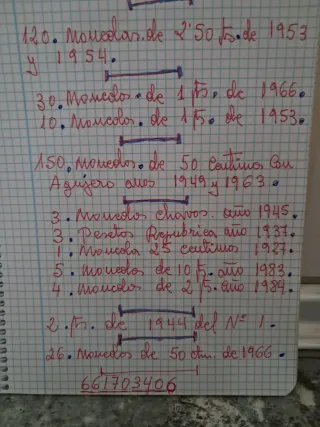 120. Monedas. de 2'50 Pts. de 1953
y 1954.
30. Monedas. de 1 Pts. de 1966.
10. Monedas. de 1 Pts. de 1953.
150. Monedas. de 50 Centimos Con
Agujero años 1949 y 1963.
3. Monedas chavos. año 1945.
3. Pesetas Republica año 1937.
1. Moneda 25 centimos 1927.
5. Monedas de 10 Pts. año 1983.
4. Monedas de 2 Pts. año 1984.
2. Pts. de 1944 del Nº 1.
26. Monedas de 50 ctm. de 1966.
661703406